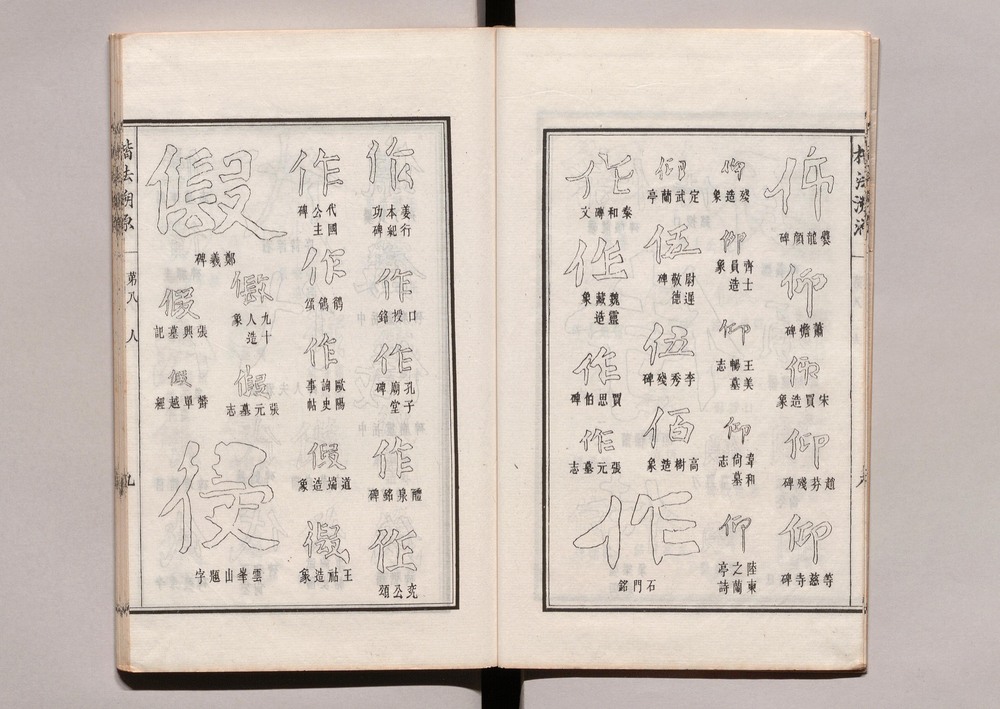 楷法溯源
仰
爨龍顏碑
仰
蕭憺碑
仰
宋買造象
仰
趙芬殘碑
仰
等慈寺碑
仰
殘造象
仰
齊士員造象
仰
王美暢墓志
仰
韋和尚墓志
仰
陸柬之蘭亭詩
仰
定武蘭亭
伍
尉遲敬德碑
伍
李秀殘碑
佰
高樹造象
作
和碑文
作
魏靈藏造象
作
賈思伯碑
作
張元墓志
作
石門銘
作
姜行本紀功碑
作
口授銘
作
孔子廟堂碑
作
醴泉銘碑
作
兖公頌
作
代國公主碑
作
鶺鴒頌
作
歐陽詢史事帖
假
道端造象
假
王祜造象
假
鄭羲碑
假
九十人造象
假
張元墓志
假
張興墓記
假
單越經
侵
雲峯山題字
楷法溯源
第八
人
九